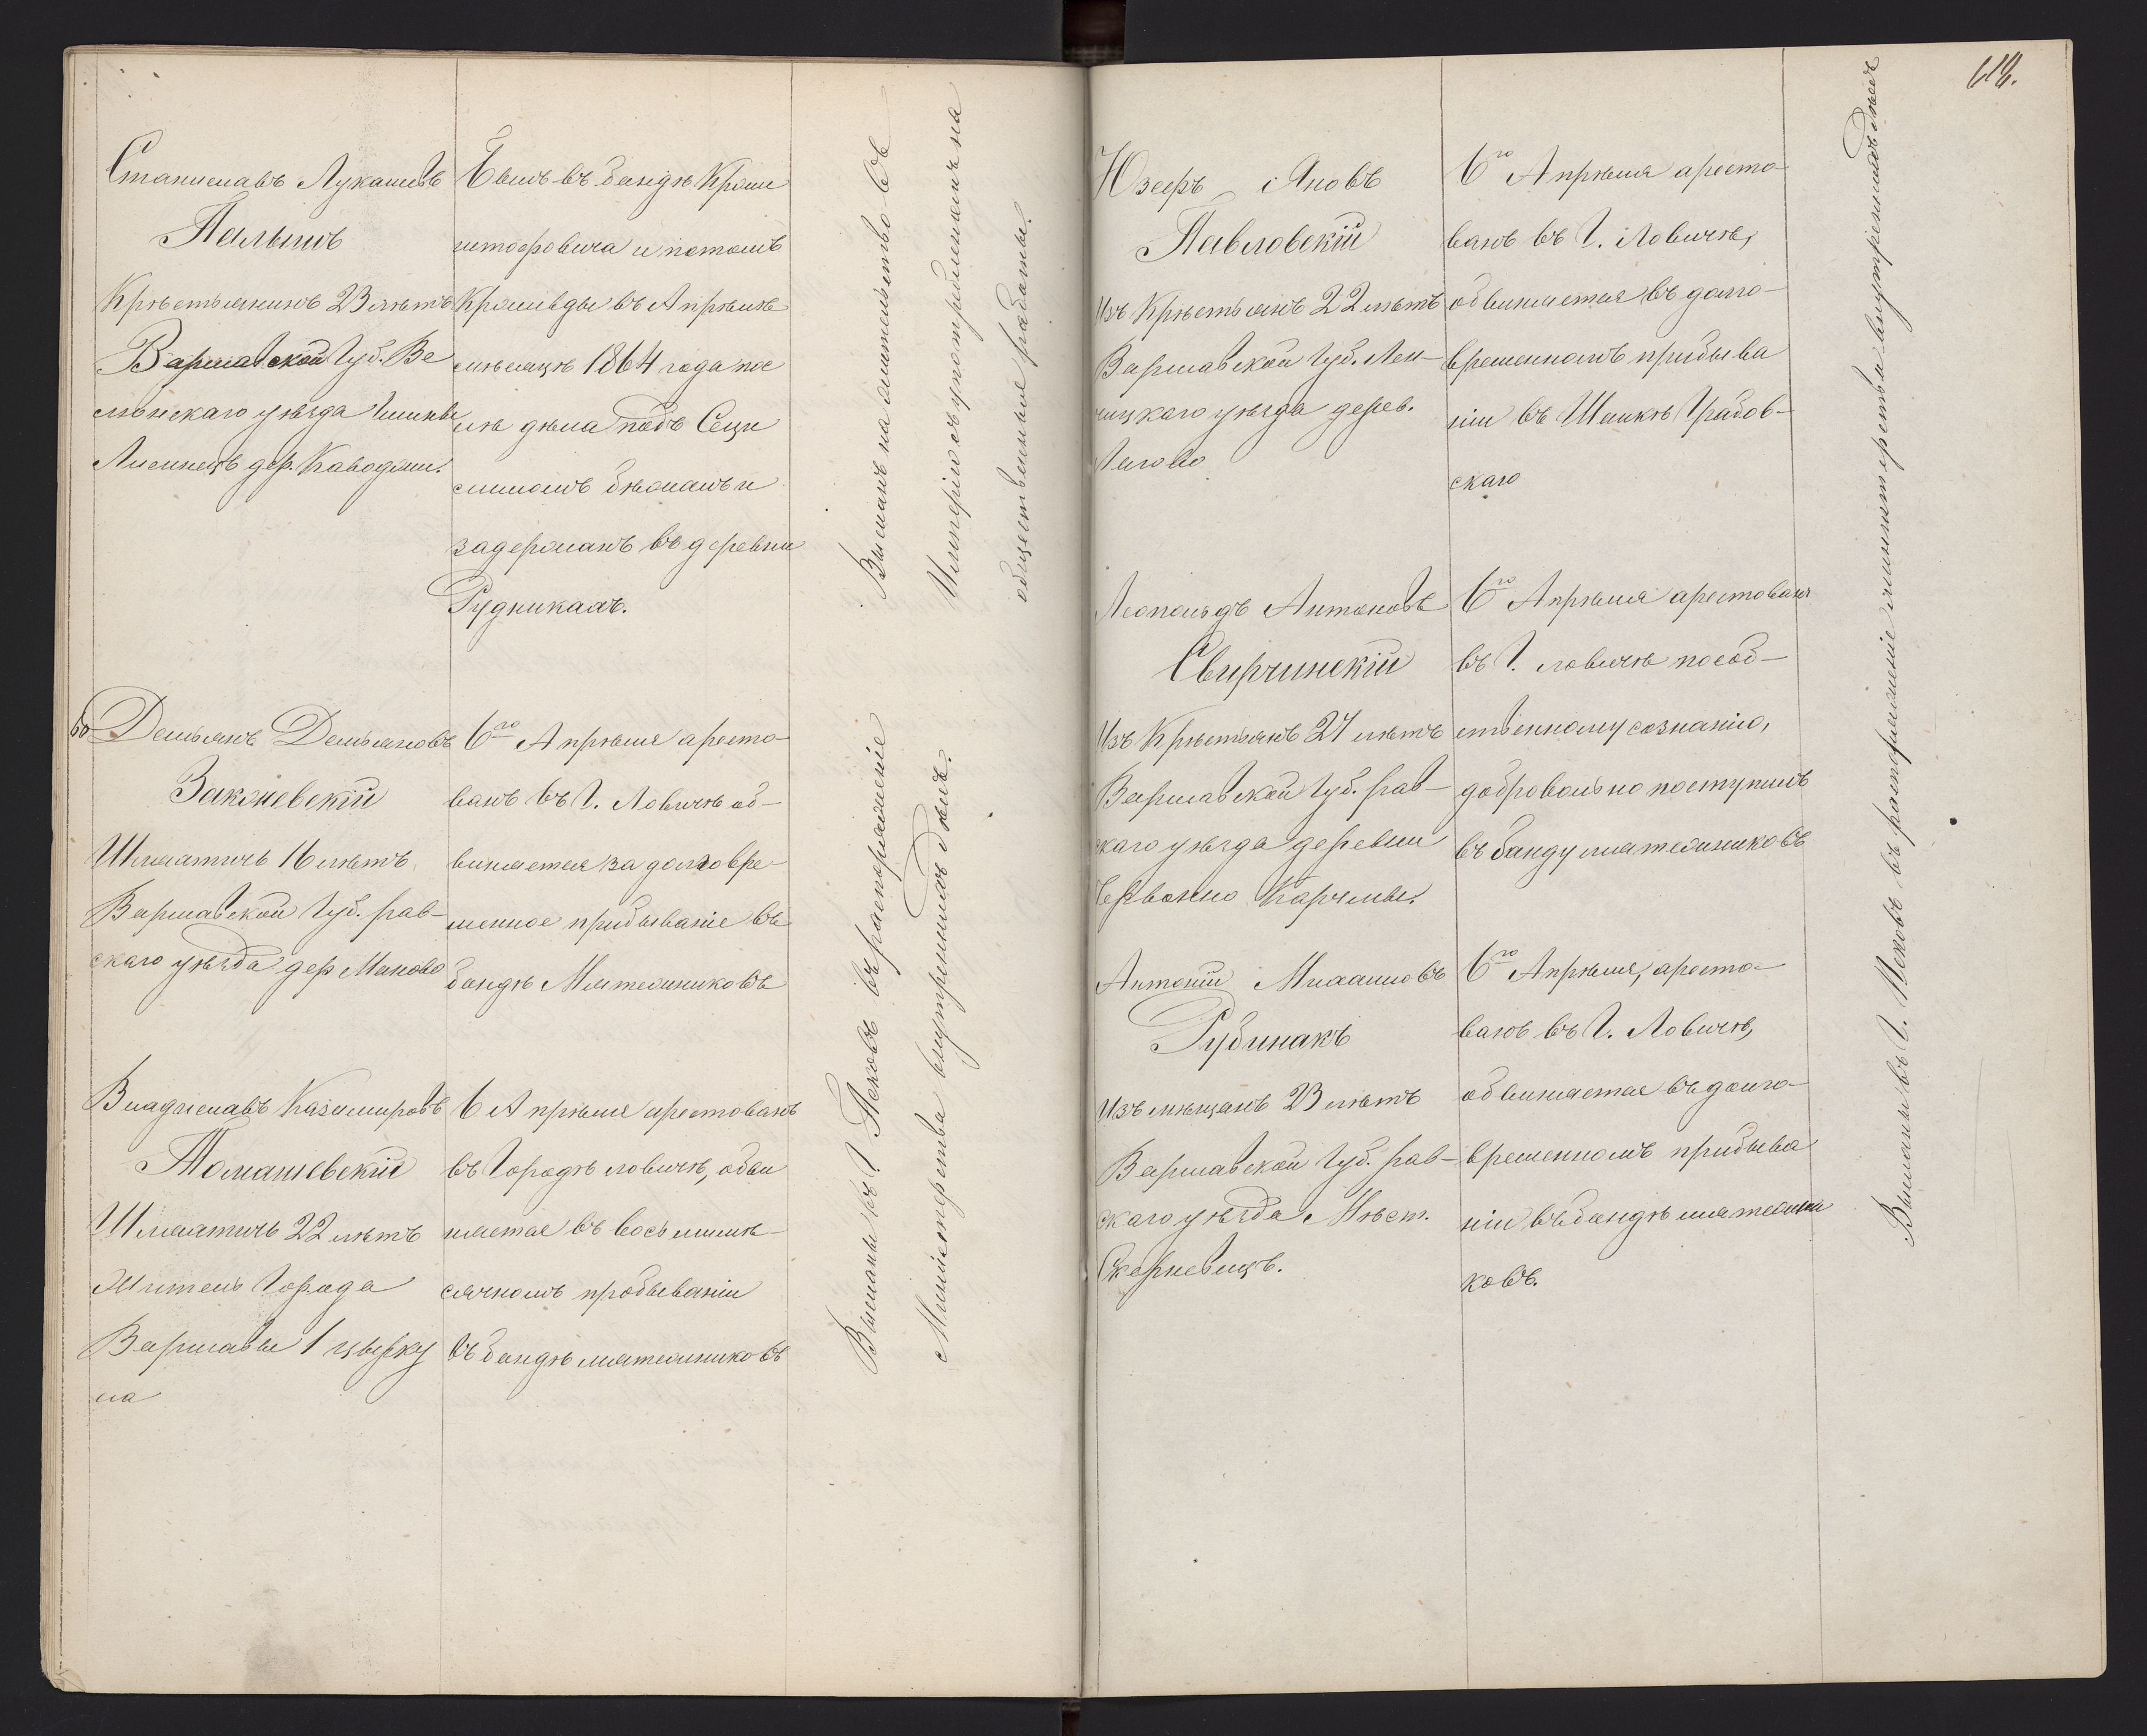 Станиславъ Лукашовъ
Пальтъ
Крѣстьянинъ 23 лѣтъ
Варшавской Губ. Ве
люнскаго уѣзда Гмины
дер.
Былъ въ бандѣ Крыш
штофовича и потомъ
въ Апрѣлѣ
мѣсяцѣ 1864 года пос
лѣ дѣла подъ
бѣжалъ и
задержанъ въ деревни
Рудникахъ.
Высланъ на жительство въ
Имперію съ употрибленіемъ на
общественные работы.
Демьянъ Демьяновъ
Закжевскій
Шляхтичь 16 лѣтъ
Варшавской Губ. Рав-
скаго уѣзда дер
6го Апрѣля аресто-
ванъ въ Г. Ловичѣ об-
виняется за долговре-
менное прибываніе въ
бандѣ Мятежниковъ
Владиславъ Казимировъ
Томашевскій
Шляхтичь 22 лѣтъ
Житель Города
Варшавы 1 цырку
ла
6 Апрѣля арестованъ
въ Городѣ ловичѣ, обви
няется въ восьмимѣ-
сячномъ пробываніи
въ бандѣ мятежниковъ
Высланы въ Г. Псковъ въ распоряженіе
Министерства внутриннихъ дѣлъ.
614.
Юзефъ Яновъ
Павловскій
Изъ Крѣстьянъ 22 лѣтъ
Варшавской Губ. Лен-
чицкаго уѣзда дерев.
6го Апрѣля аресто-
ванъ въ Г. Ловичѣ,
обвиняется въ долго-
временномъ прибыва
ніи въ Шайкѣ Грабов-
скаго
Леопольдъ Антоновъ
Свирчинскій
Изъ Крѣстьянъ 27 лѣтъ
Варшавской Губ. Рав-
скаго уѣзда деревни
Карчмы.
6го Апрѣля арестованъ
въ Г. ловичѣ пособ-
ственному сознанію,
добровольно поступилъ
въ банду мятежниковъ
Антоній Михаиловъ
Рубинакъ
Изъ мѣщанъ 23 лѣтъ
Варшавской Губ. Рав-
скаго уѣзда Мѣст.
Скерневицъ.
6го Апрѣля, аресто-
ванъ въ Г. Ловичѣ,
обвиняется въ долго-
временномъ прибыва
ніи въ бандѣ мятежни
ковъ.
Высланы въ Г. Псковъ въ распоряженіе министерства внутреннихъ дѣлъ